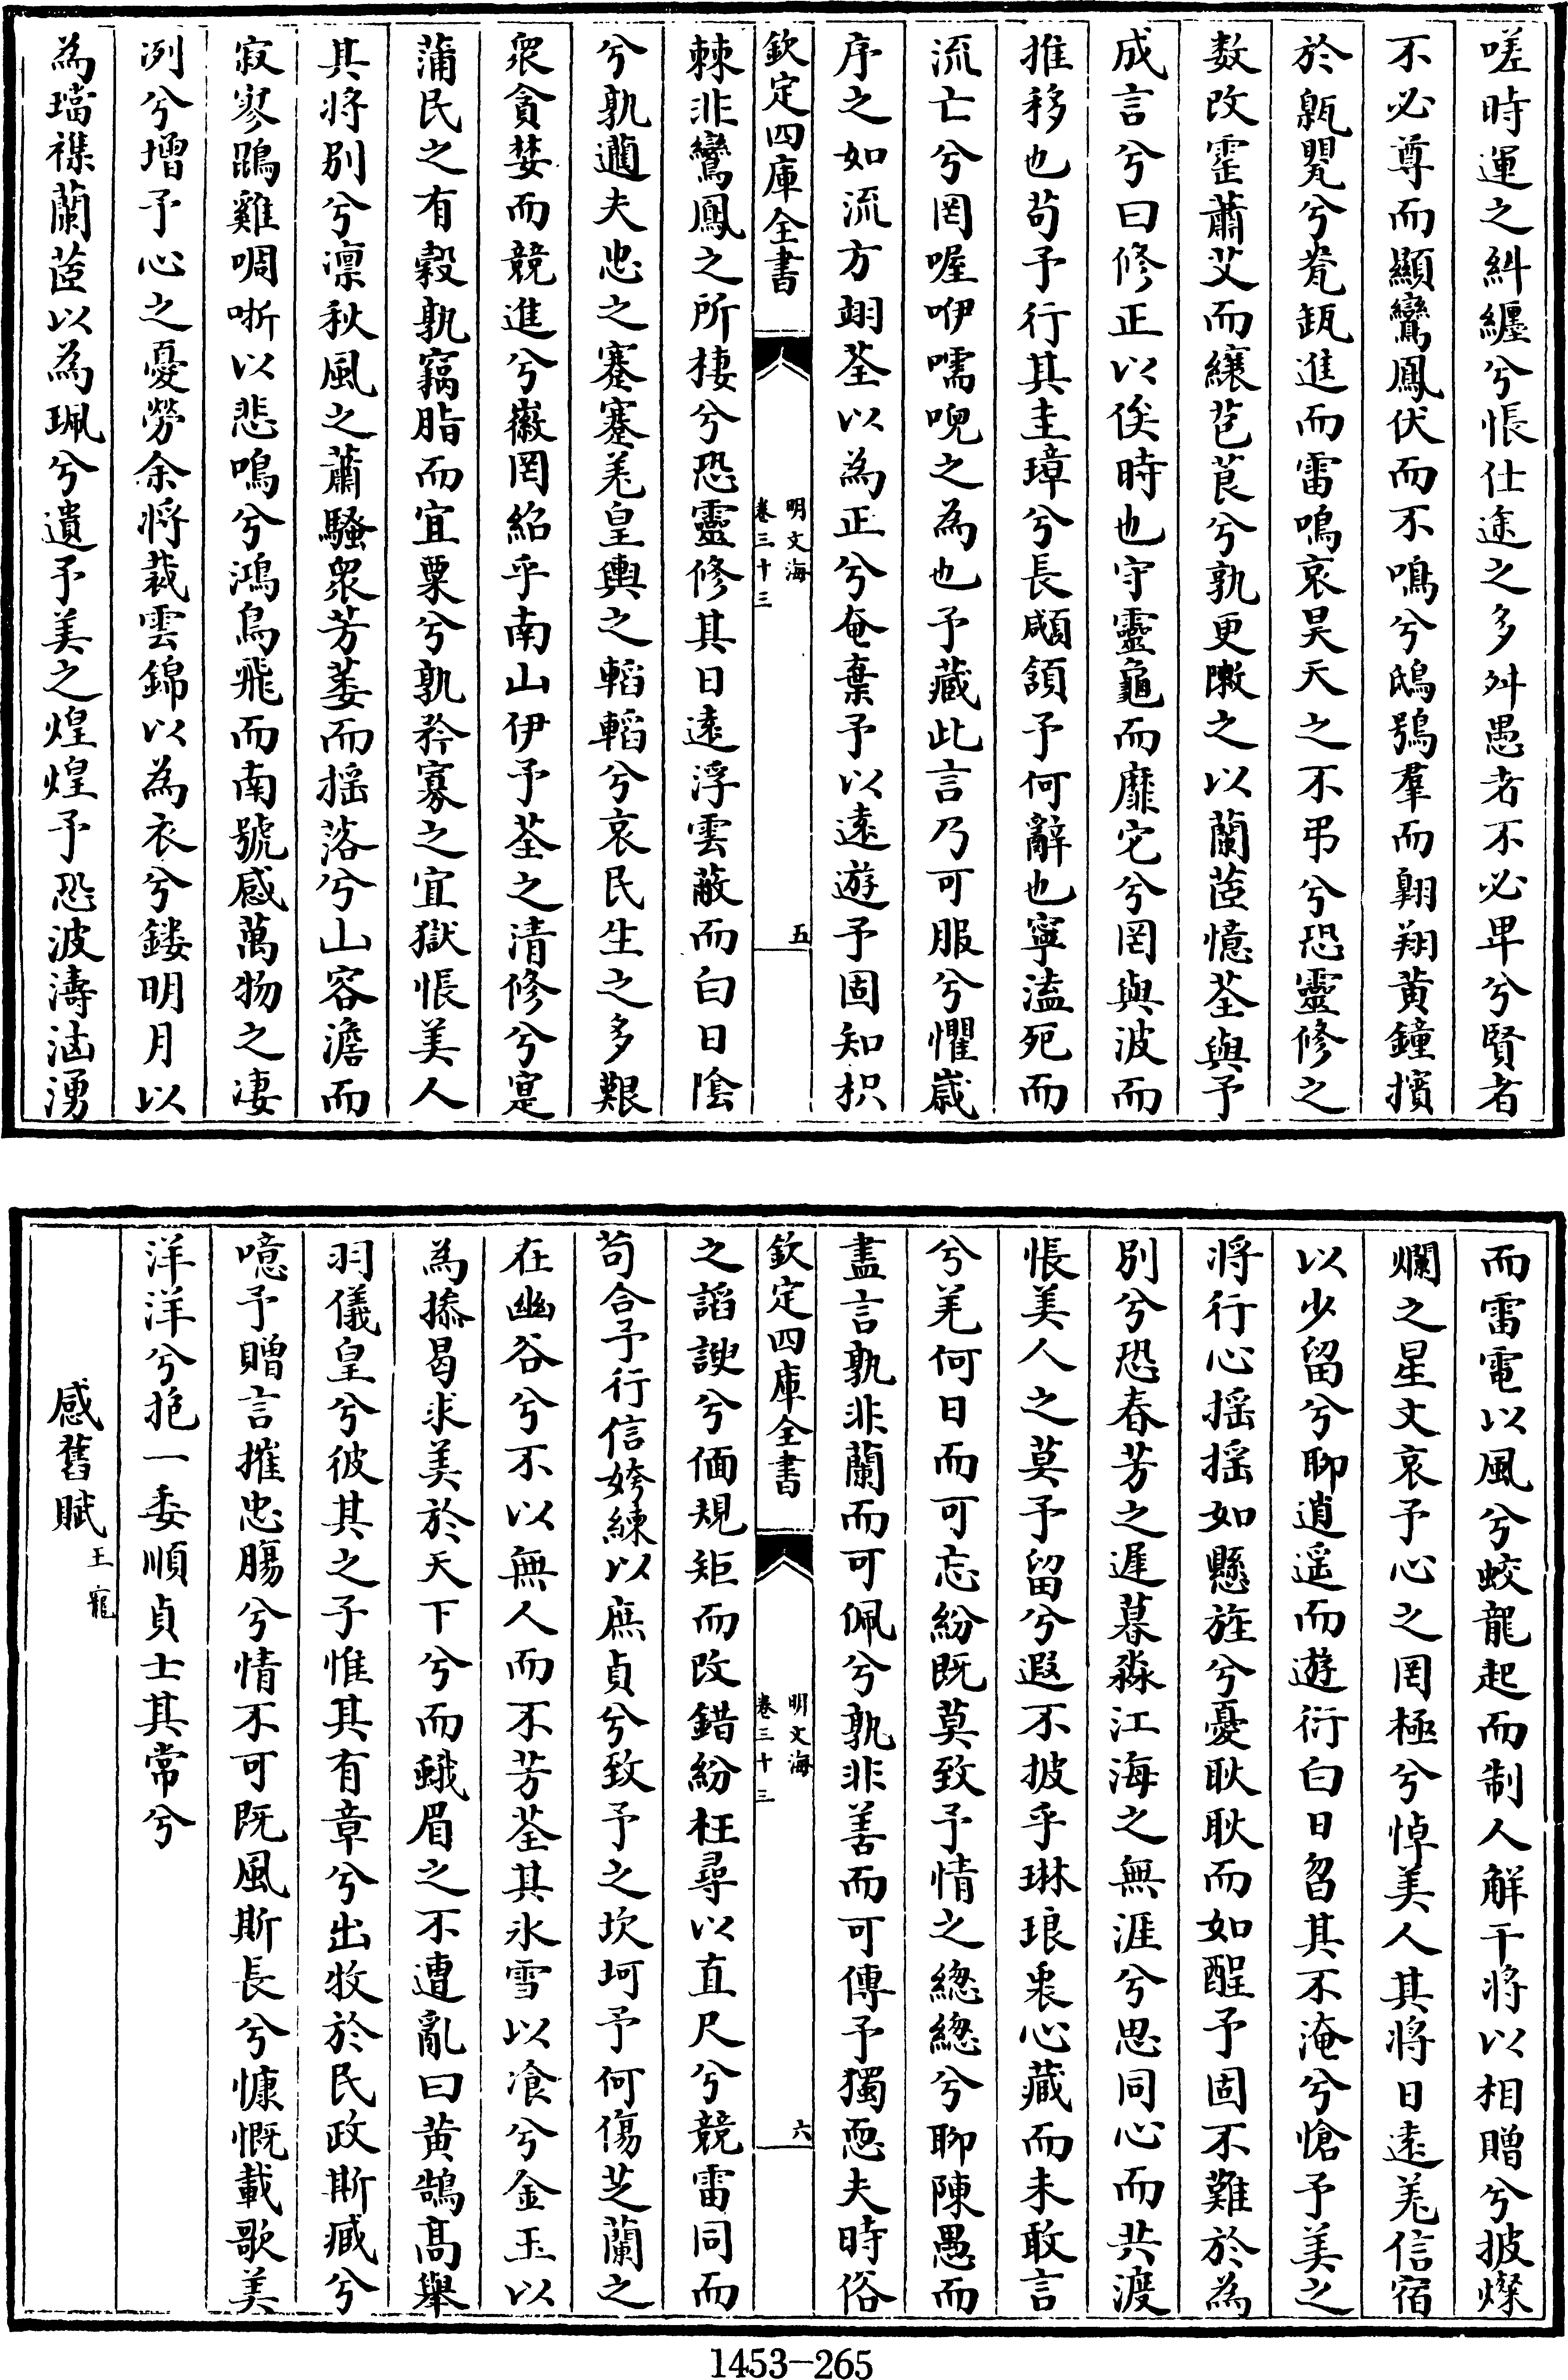 嗟時運之糾纏兮悵仕途之多舛愚者不必卑兮賢者
不必尊而顯鸞鳳伏而不鳴兮鴟鴞羣而翺翔黄鐘擯
於甈甖兮㼜瓵進而雷鳴哀昊天之不弔兮恐靈修之
数改霍蕭艾而纕芭莨兮孰更嗽之以蘭茝憶荃與予
成言兮曰修正以俟時也守靈龜而靡它兮罔與波而
推移也苟予行其圭璋兮長顑頷予何辭也寧溘死而
流亡兮罔喔咿嚅唲之為也予藏此言乃可服兮懼歲
序之如流方翊荃以為正兮奄棄予以遠遊予固知枳
欽定四庫全書
明文海
卷三十三
五
棘非鸞鳳之所棲兮恐靈修其日遠浮雲蔽而白日陰
兮孰適夫忠之蹇蹇羌皇輿之轁轁兮哀民生之多艱
衆貪婪而競進兮嶶罔紹乎南山伊予荃之清修兮寔
蒲民之有穀孰竊脂而宜粟兮孰矜寡之宜獄悵美人
其将别兮凛秋風之蕭騷衆芳萎而揺落兮山容澹而
寂寥鵾雞啁哳以悲鳴兮鴻鳥飛而南號感萬物之凄
洌兮增予心之憂勞余将裁雲錦以為衣兮鏤明月以
為璫襍蘭茝以為珮兮遺予美之煌煌予恐波濤汹湧
而雷電以風兮蛟龍起而制人解干将以相贈兮披燦
爛之星文哀予心之罔極兮悼美人其将日遠羌信宿
以少留兮聊逍遥而遊衍白日曶其不淹兮愴予美之
将行心揺揺如懸旌兮憂耿耿而如酲予固不難於為
别兮恐春芳之遲暮淼江海之無涯兮思同心而共渡
悵美人之莫予留兮遐不披乎琳琅裊心藏而未敢言
兮羌何日而可忘紛既莫致予情之緫緫兮聊陳愚而
盡言孰非蘭而可佩兮孰非善而可傳予獨悪夫時俗
欽定四庫全書
明文海
卷三十三
六
之謟諛兮偭規矩而改錯紛枉尋以直尺兮競雷同而
苟合予行信姱練以庶貞兮致予之坎坷予何傷芝蘭之
在幽谷兮不以無人而不芳荃其氷雪以飡兮金玉以
為搽曷求美於天下兮而蛾眉之不遭亂曰黄鵠髙舉
羽儀皇兮彼其之子惟其有章兮出牧於民政斯臧兮
噫予贈言摧忠腸兮情不可既風斯長兮慷慨載歌美
洋洋兮抱一委順貞士其常兮
感舊賦王寵
1453-265